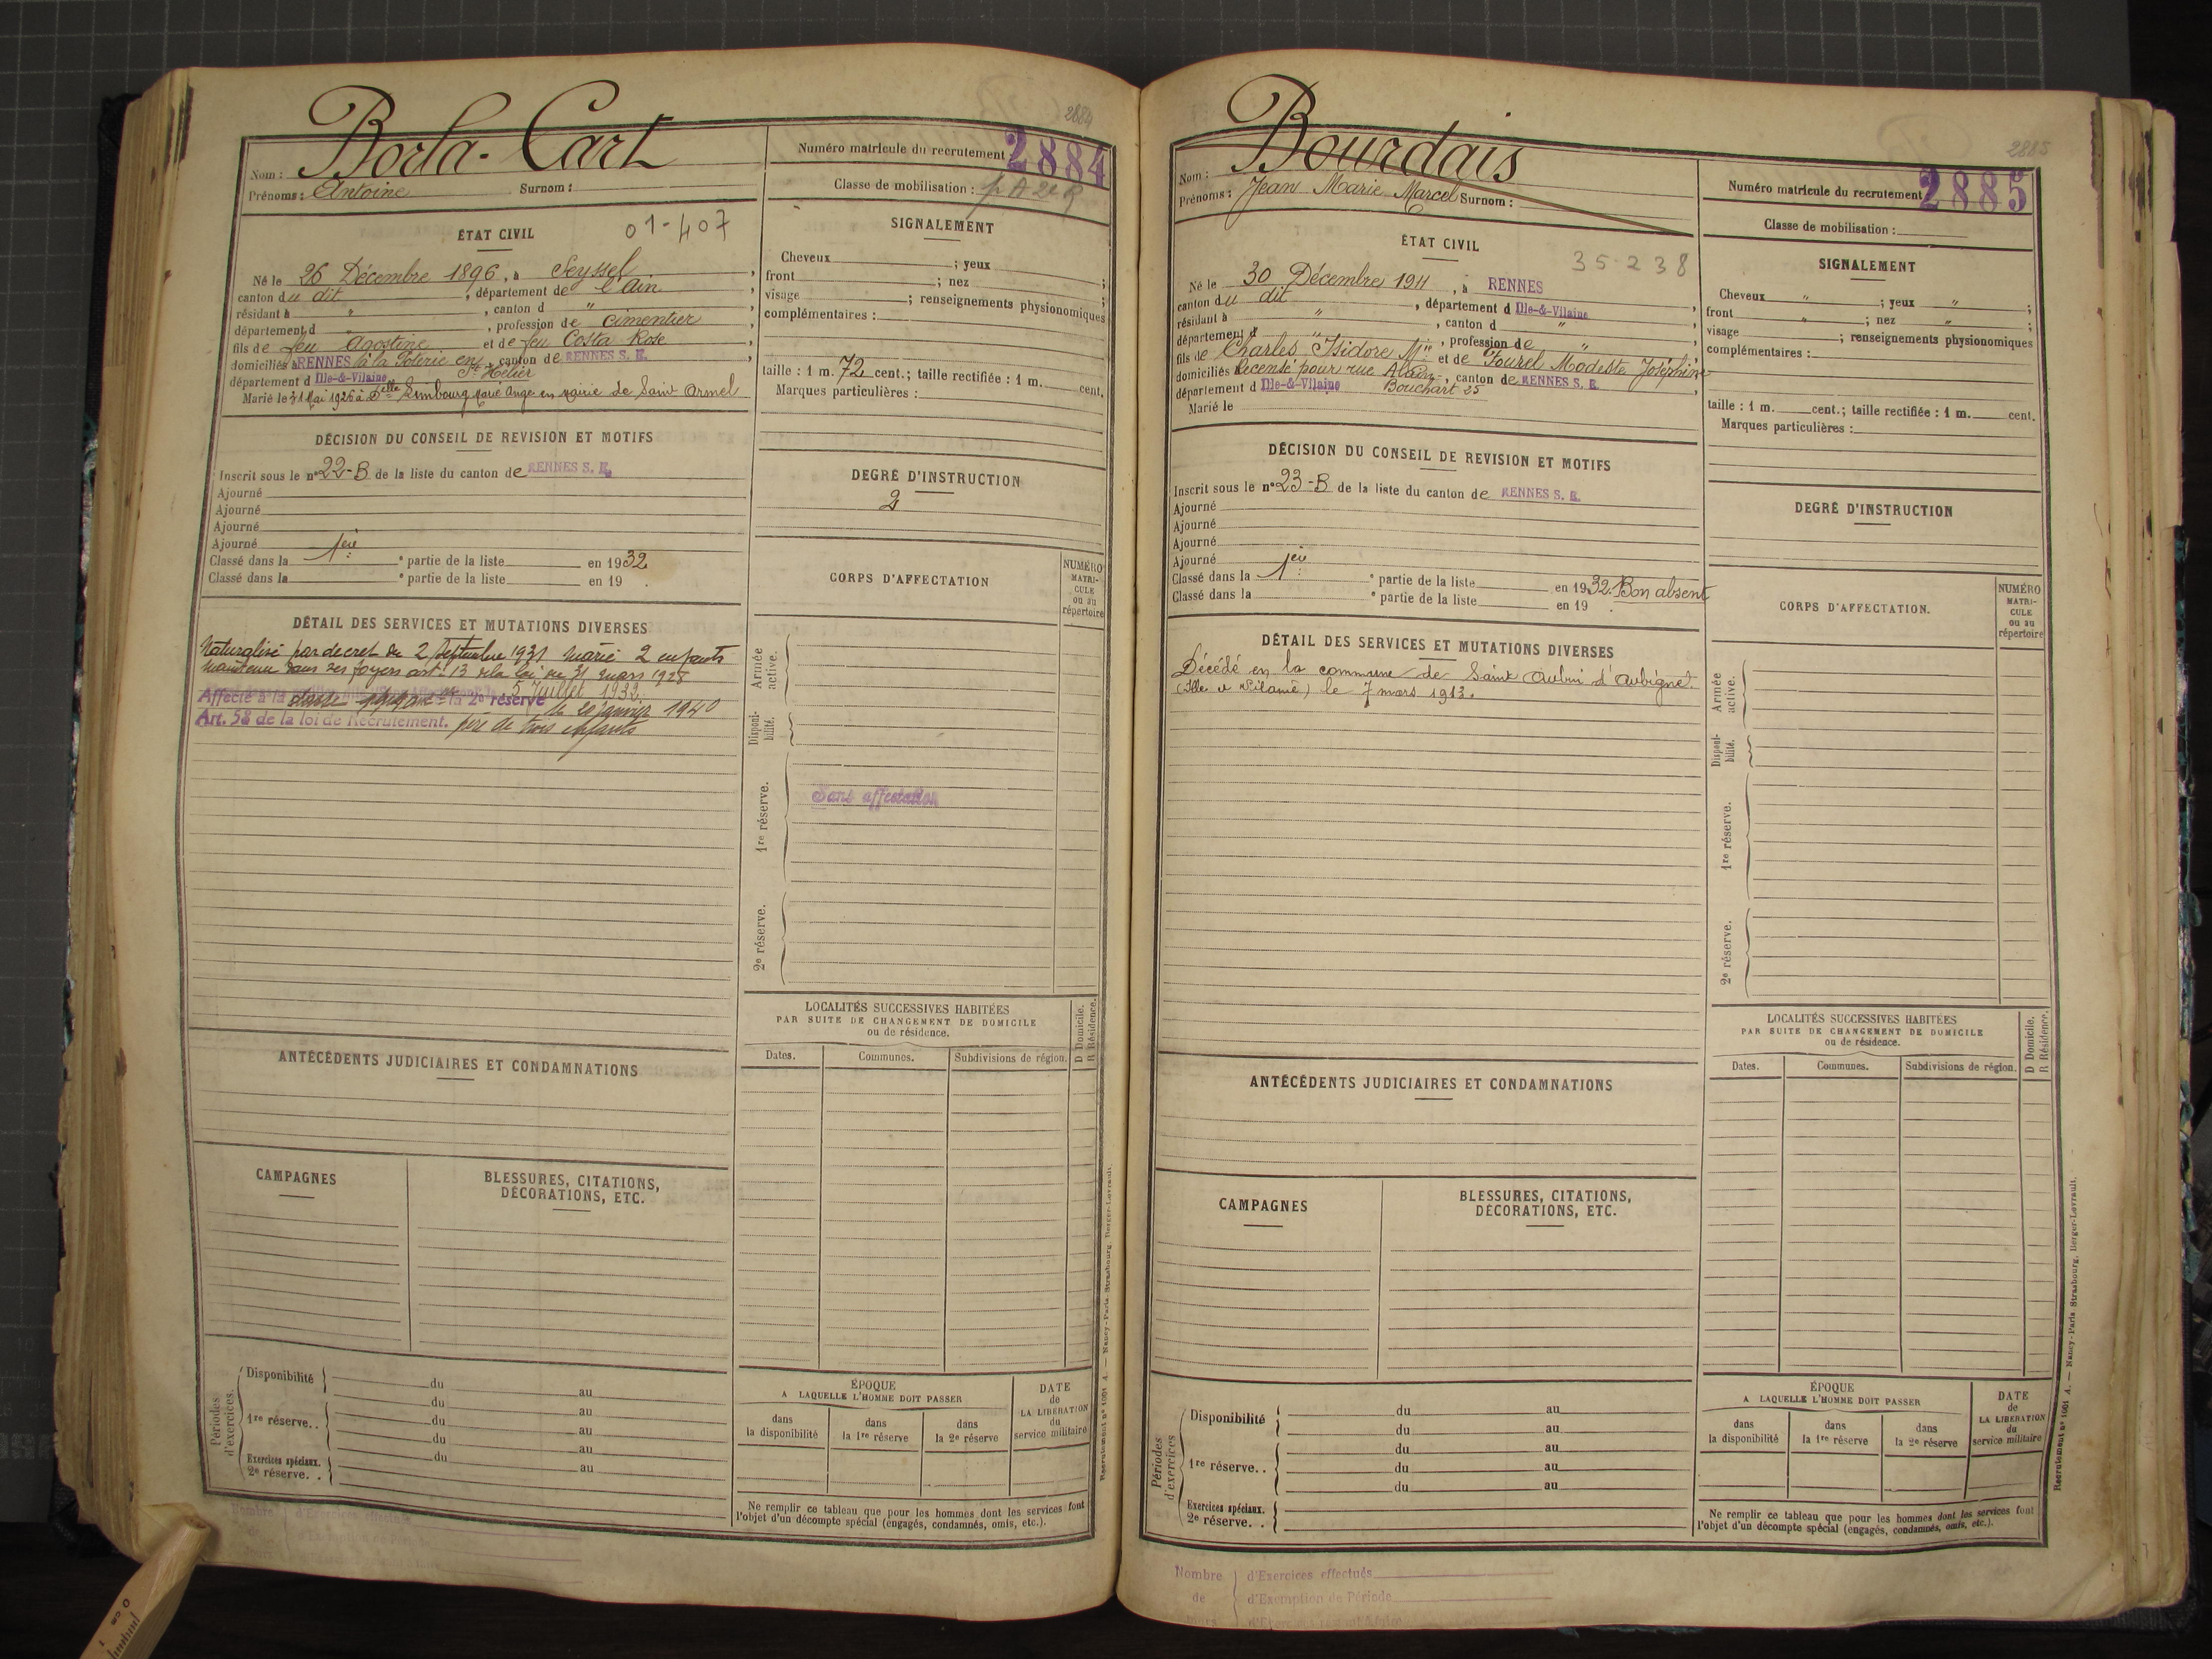 2884
Borla-Cart
Nom :
Prénoms : Antoine Surnom :
Numéro matricule du recrutement 2884
Classe de mobilisation :
ÉTAT CIVIL
01-407
Né le 26 Décembre 1896, à Seyssel,
canton du dit ; département de l'ain,
résidant à " , canton d " ,
département d " , profession de cimentier,
fils de feu Agostine et de feu Costa Rose
domiciliés à RENNES à la Poterie en St Hélier, canton de RENNES S. E.
département d Ille-&-Vilaine
Marié le 31 Mai 1926 à Delle Simbourg Marie Ange en mairie de Saint Armel
SIGNALEMENT
Cheveux ; yeux ;
front ; nez ;
visage ; renseignements physionomiques
complémentaires :
taille : 1 m. 72 cent.; taille rectifiée : 1 m. cent.
Marques particulières :
DÉCISION DU CONSEIL DE REVISION ET MOTIFS
Inscrit sous le n° 22-B de la liste du canton de RENNES S. E.
Ajourné
Ajourné
Ajourné
Ajourné
Classé dans la 1ere e partie de la liste en 1932
Classé dans la e partie de la liste en 19 .
DEGRÉ D'INSTRUCTION
2
DÉTAIL DES SERVICES ET MUTATIONS DIVERSES
Naturalisé par decret du 2 Septembre 1931 marié 2 enfants
maintenu dans ses foyers art. 13 de la loi du 31 mars 1928
5 Juillet 1932
Affecté à la classe la 2e réserve le 20 janvier 1940
Art. 58 de la loi de Recrutement. père de trois enfants
CORPS D'AFFECTATION
NUMÉRO MATRICULE ou au répertoire
Armée active.
Disponibilité.
1re réserve.
Sans affectation
2e réserve.
LOCALITÉS SUCCESSIVES HABITÉES
PAR SUITE DE CHANGEMENT DE DOMICILE
ou de résidence.
D Domicile.
R Résidence.
Dates. Communes. Subdivisions de région.
ANTÉCÉDENTS JUDICIAIRES ET CONDAMNATIONS
CAMPAGNES
BLESSURES, CITATIONS,
DÉCORATIONS, ETC.
Périodes d'exercices.
Disponibilité du au
du au
1re réserve.. du au
du au
au
Exercices spéciaux. du au
2e réserve. .
ÉPOQUE
A LAQUELLE L'HOMME DOIT PASSER
dans la disponibilité
dans la 1re réserve
dans la 2e réserve
DATE de LA LIBÉRATION du service militaire
Ne remplir ce tableau que pour les hommes dont les services font
l'objet d'un décompte spécial (engagés, condamnés, omis, etc.).
Recrutement n° 1001 A. — Nancy-Paris-Strasbourg, Berger-Levrault.
Nombre d'Exercices effectués
2885
Bourdais
Nom :
Prénoms : Jean Marie Marcel Surnom :
Numéro matricule du recrutement 2885
Classe de mobilisation :
ÉTAT CIVIL
35-238
Né le 30 Décembre 1911, à RENNES
canton du dit , département d Ille-&-Vilaine
résidant à " , canton d " ,
département d " , profession de " ,
fils de Charles Isidore Mie et de Tourel Modeste Joséphine
domiciliés Recensé pour rue Alain, canton de RENNES S. E.
département d Ille-&-Vilaine Bouchart 25
Marié le
SIGNALEMENT
Cheveux " ; yeux " ;
front " ; nez " ;
visage ; renseignements physionomiques
complémentaires :
taille : 1 m. cent.; taille rectifiée : 1 m. cent.
Marques particulières :
DÉCISION DU CONSEIL DE REVISION ET MOTIFS
Inscrit sous le n° 23-B de la liste du canton de RENNES S. E.
Ajourné
Ajourné
Ajourné
Ajourné
Classé dans la 1ere e partie de la liste en 1932. Bon absent
Classé dans la e partie de la liste en 19 .
DEGRÉ D'INSTRUCTION
DÉTAIL DES SERVICES ET MUTATIONS DIVERSES
Décédé en la commune de Saint Aubin d'Aubigné.
(Ille et Vilaine) le 7 mars 1913.
CORPS D'AFFECTATION.
NUMÉRO MATRICULE ou au répertoire
Armée active.
Disponibilité.
1re réserve.
2e réserve.
LOCALITÉS SUCCESSIVES HABITÉES
PAR SUITE DE CHANGEMENT DE DOMICILE
ou de résidence.
D Domicile.
R Résidence.
Dates. Communes. Subdivisions de région.
ANTÉCÉDENTS JUDICIAIRES ET CONDAMNATIONS
CAMPAGNES
BLESSURES, CITATIONS,
DÉCORATIONS, ETC.
Périodes d'exercices
Disponibilité du au
du au
1re réserve.. du au
du au
du au
Exercices spéciaux.
2e réserve. .
ÉPOQUE
A LAQUELLE L'HOMME DOIT PASSER
dans la disponibilité
dans la 1re réserve
dans la 2e réserve
DATE de LA LIBÉRATION du service militaire
Ne remplir ce tableau que pour les hommes dont les services font
l'objet d'un décompte spécial (engagés, condamnés, omis, etc.).
Recrutement n° 1001 A. — Nancy-Paris-Strasbourg, Berger-Levrault.
Nombre d'Exercices effectués
de d'Exemption de Période